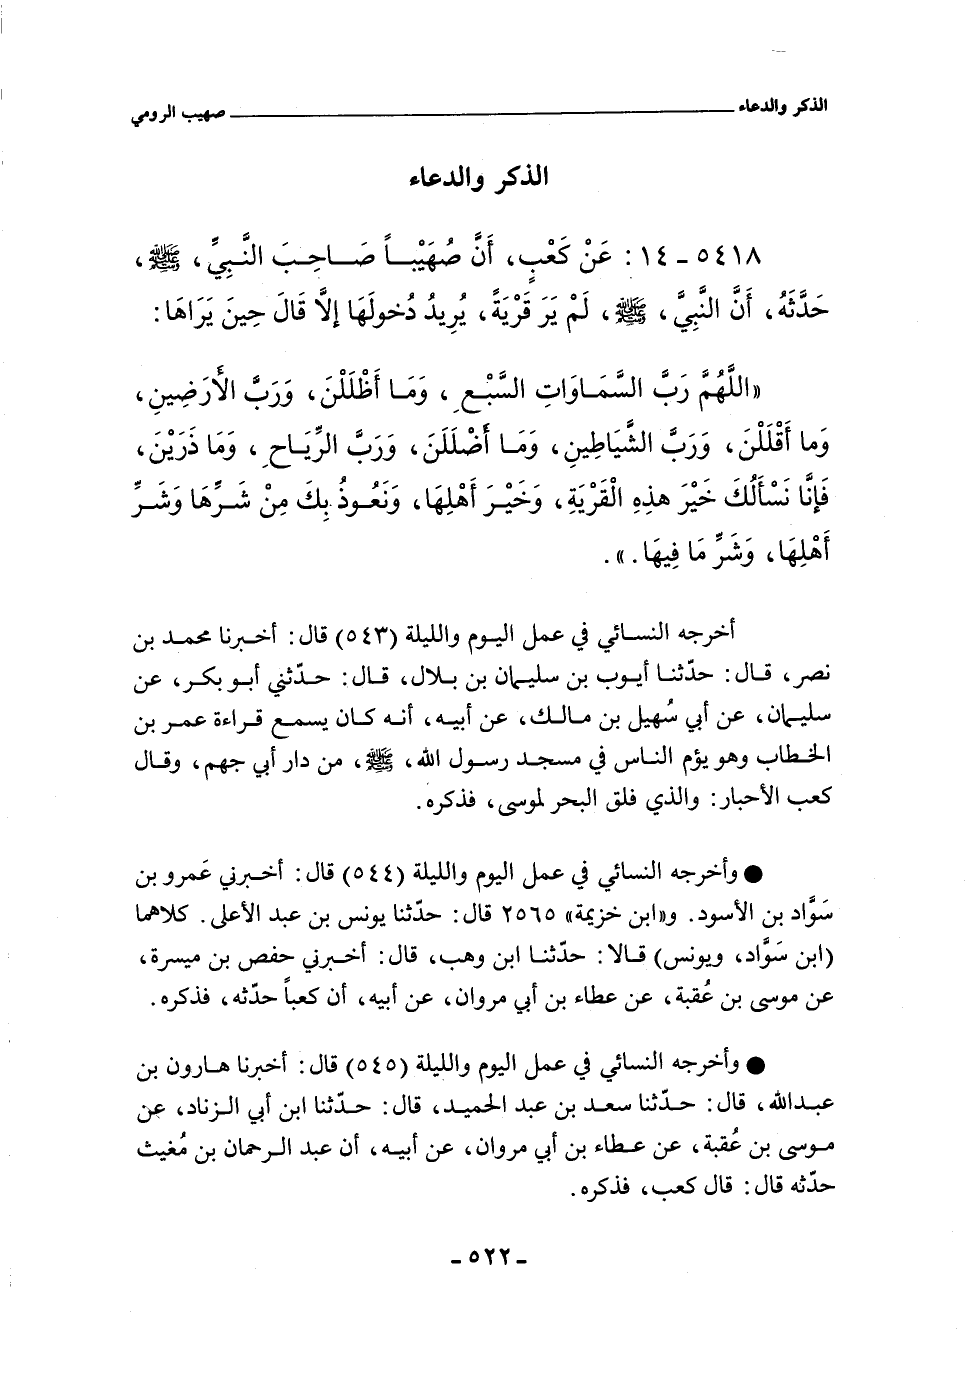 الذكر والدعاء ــــــ صهيب الرومي
الذكر والدعاء
٥٤١٨ - ١٤ : عَنْ كَعْبٍ، أَنَّ صُهَيْبـاً صَـاحِـبَ النَّـبِيِّ، ﷺ،
حَدَّثَهُ، أَنَّ النَّبِيَّ، ﷺ، لَمْ يَرَ قَرْيَةً، يُرِيدُ دُخولَهَا إلَّا قَالَ حِينَ يَرَاهَا:
«اللَّهُمَّ رَبَّ السَّمَـاوَاتِ السَّبْعِ ، وَمَـا أَظْلَلْنَ، وَرَبَّ الأَرَضِينِ،
وَما أَقْلَلْنَ، وَرَبَّ الشَّيَاطِينِ، وَمَـا أَضْلَلَنَ، وَرَبَّ الرِّيَـاحِ ، وَمَا ذَرَيْنَ،
فَإنَّا نَسْأَلُكَ خَيْرَ هذِهِ الْقَرْيَةِ، وَخَيْـرَ أَهْلِهَا، وَنَعُـوذُ بِكَ مِنْ شَـرِّهَا وَشَـرِّ
أَهْلِهَا، وَشَرِّ مَا فِيهَا.».
أخرجه النسائي في عمل اليـوم والليلة (٥٤٣) قال: أخـبرنا محمـد بن
نصر، قـال: حدّثنـا أيـوب بن سليمان بن بـلال، قـال: حـدّثني أبـو بكـر، عن
سليمان، عن أبي سُهيل بن مـالـك، عن أبيه، أنـه كـان يسمـع قـراءة عمـر بن
الخـطاب وهو يؤم النـاس في مسجـد رسـول الله، ﷺ، من دار أبي جهم، وقـال
كعب الأحبار: والذي فلق البحر لموسى، فذكره.
● وأخرجه النسائي في عمل اليوم والليلة (٥٤٤) قال: أخـبرني عَمرو بن
سَوَّاد بن الأسود. و«ابن خزيمة» ٢٥٦٥ قال: حدّثنا يونس بن عبد الأعلى. كلاهما
(ابن سَوَّاد، ويونس) قـالا: حدّثنـا ابن وهب، قال: أخـبرني حفص بن ميسرة،
عن موسى بن عُقبة، عن عطاء بن أبي مروان، عن أبيه، أن كعباً حدّثه، فذكره.
● وأخرجه النسائي في عمل اليوم والليلة (٥٤٥) قال: أخبرنا هـارون بن
عبـدالله، قال: حـدّثنا سعـد بن عبد الحميـد، قال: حـدّثنا ابن أبي الـزناد، عن
مـوسى بن عُقبة، عن عـطاء بن أبي مروان، عن أبيـه، أن عبد الـرحمان بن مُغيث
حدّثه قال: قال كعب، فذكره.
- ٥٢٢ -